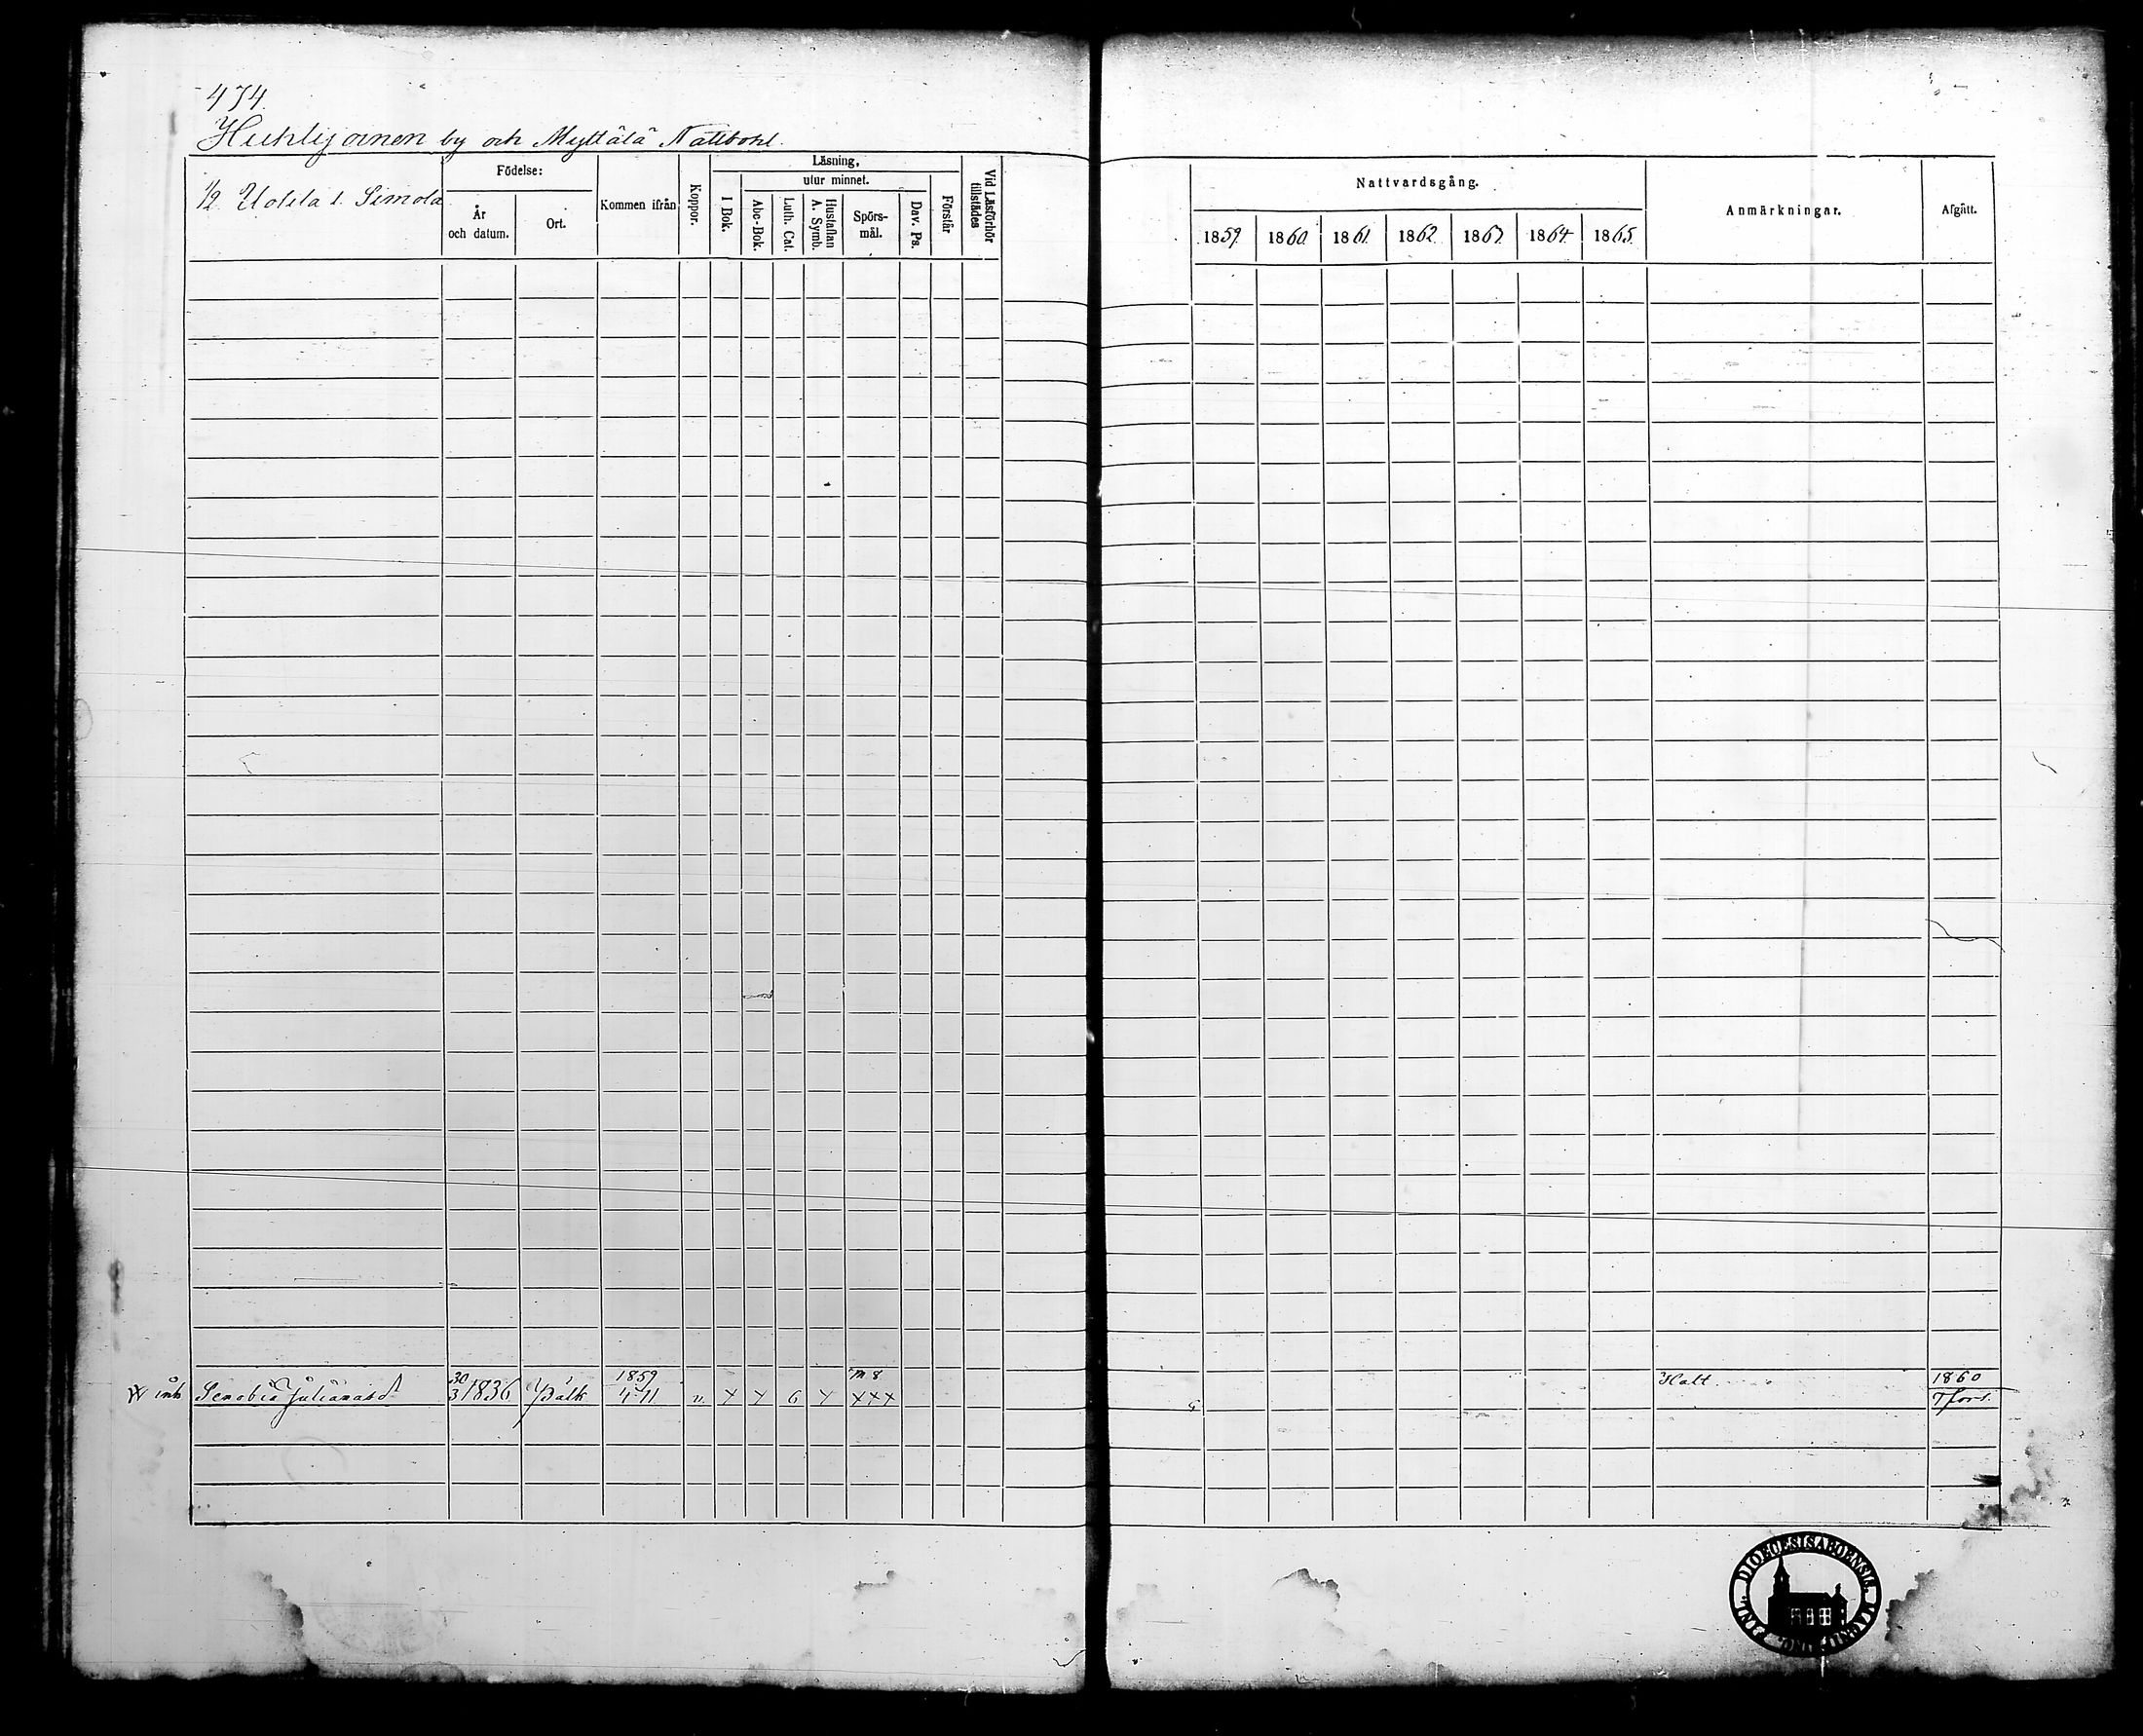 474.
Huhlijainen by och Myttälä Nattbohl.
1/2 Uotila l. Simola
Födelse:
År och datum.
Ort.
Kommen ifrån
Koppor.
Läsning,
I Bok.
utur minnet.
Abc-Bok.
Luth. Cat.
Hustaflan A. Symb.
Spörs-mål.
Dav. Ps.
Förstår
Vid Läsförhör tillstädes
Nattvardsgång.
1859. 1860. 1861. 1862. 1863. 1864. 1865.
Anmärkningar.
Afgått.
30 1859 m 8 Hatt. 1860
inh Senobia Julianasd 3 1836 4/11 n. x x 6 x xxx Tfors.
DIOECESIS ABOENSIS